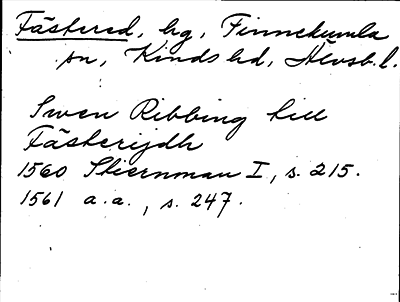 Fästered, hg, Finnekumla
sn, Kinds hd, Älvsb. l.
Swen Ribbing till
Fästerijdh
1560 Stiernman I, s. 215.
1561 a.a., s. 247.